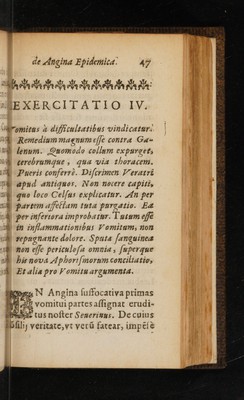 de Angina Epidemica. 47
EXERCITATIO IV.
Vomitus à difficultatibus vindicatur.
Remedium magnum esse contra Ga-
lenum. Quomodo collum expurget,
cerebrumque, qua via thoracem.
Pueris conferrè. Discrimen Veratri
apud antiquos. Non nocere capiti,
quo loco Celsus explicatur. An per
partem affectam tuta purgatio. Ea
per inferiora improbatur. Tutum esse
in inflammationibus Vomitum, non
repugnante dolore. Sputa sanguinea
non esse periculosa omnia, superque
his nova Aphorismorum conciliatio,
Et alia pro Vomitu argumenta.
IN Angina suffocativa primas
vomitui partes assignat erudi-
tus noster Severinus. De cuius
veritate, vt verũ fatear, impẽsè